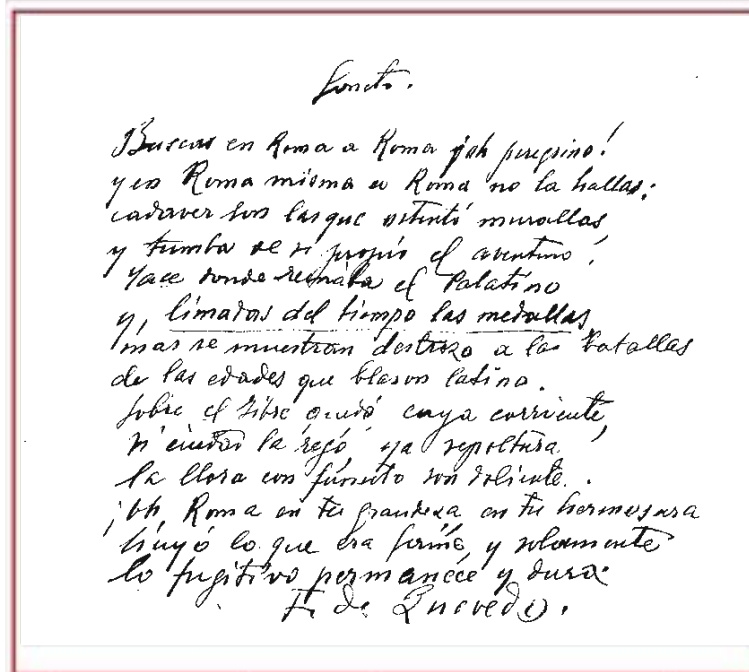 Soneto.
Buscas en Roma a Roma ¡oh peregrino!
y en Roma misma a Roma no la hallas;
cadaver son las que ostentó murallas
y tumba de si propio el aventino.
Yace donde reinaba el Palatino
y, limadas del tiempo las medallas
mas se muestran destrozo a las batallas
de las edades que blason latino.
Sobre el Tibre quedó cuya corriente,
si ciudad la regó ya sepoltura
la llora con funesto son doliente.
¡oh, Roma en tu grandeza en tu hermosura
huyó lo que era firme, y solamente
lo fugitivo permanece y dura.
F. de Quevedo.